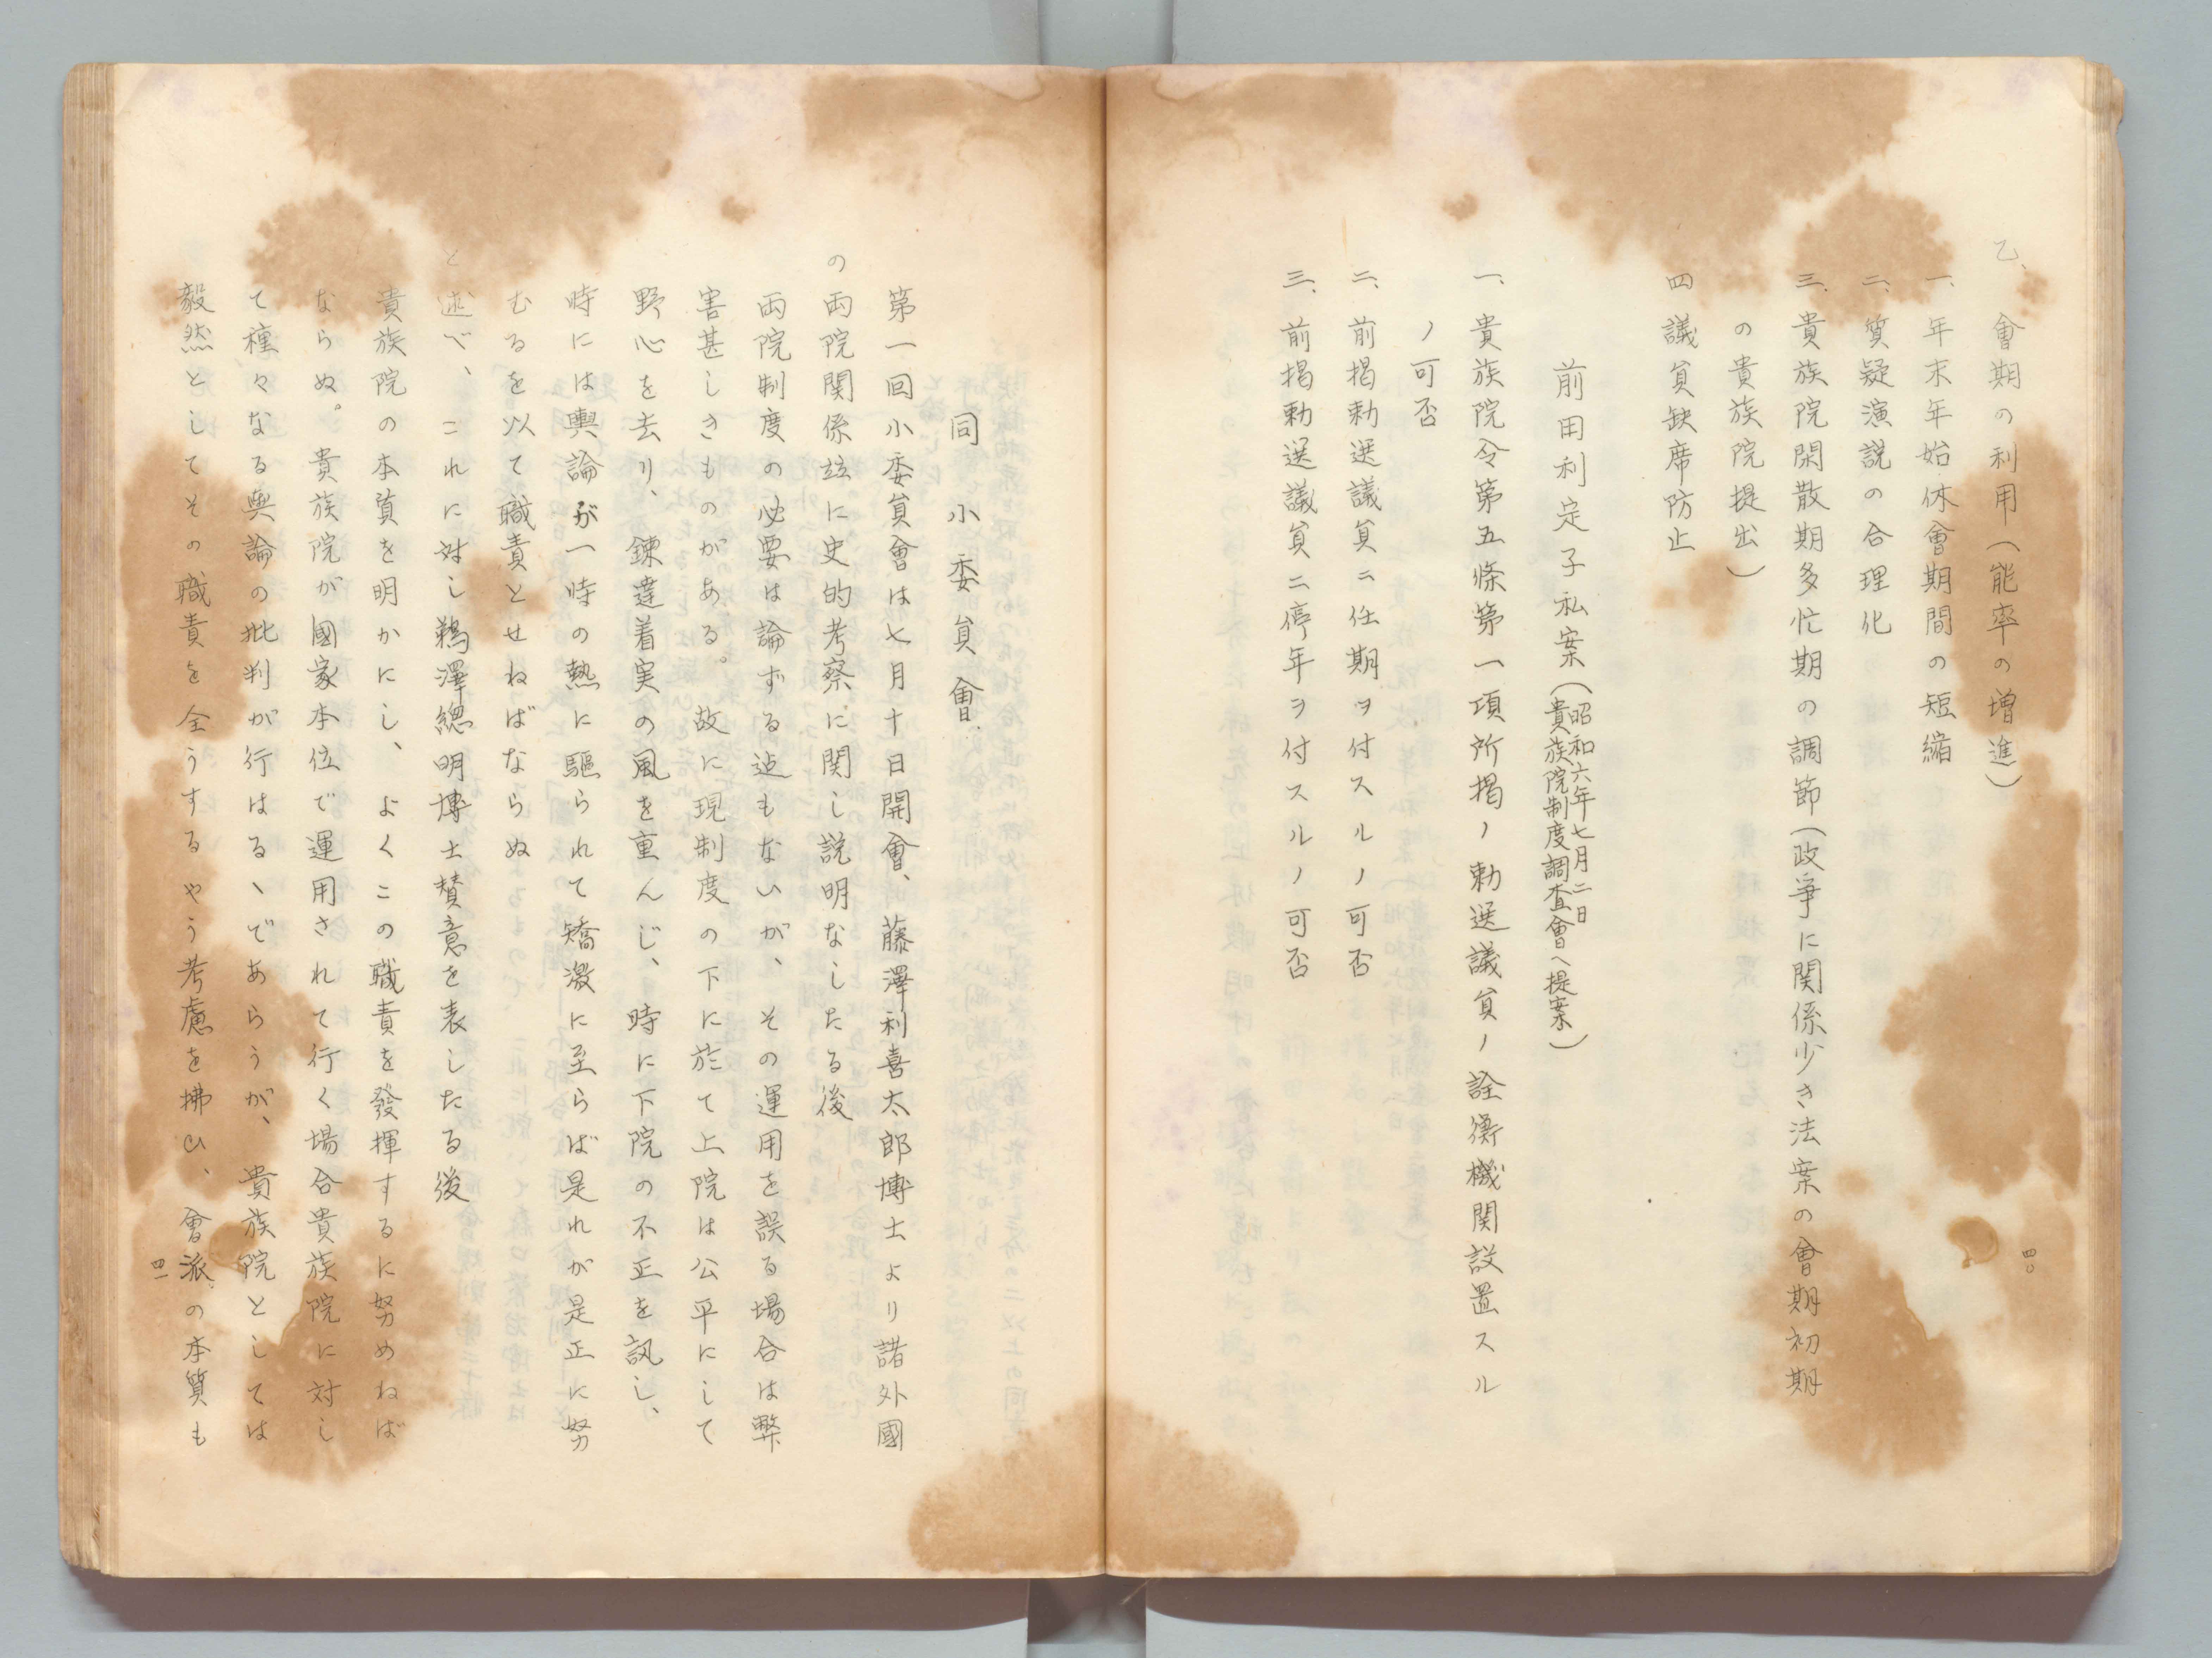 乙、會期の利用(能率の增進)
一、年末年始休會期間の短縮
二、質疑演説の合理化
三、貴族院閑散期多忙期の調節(政爭に関係少き法案の會期初期
の貴族院提出)
四 議員缺席防止
前田利定子私案(昭和六年七月二日
貴族院制度調査會へ提案)
一、貴族院令第五條第一項所掲ノ勅選議員ノ詮衡機関設置スル
ノ可否
二、前掲勅選議員ニ任期ヲ付スルノ可否
三、前掲勅選議員ニ停年ヲ付スルノ可否
四〇
同小委員會
第一回小委員會は七月十日開會、藤澤利喜太郎博士より諸外國
の両院関係竝に史的考察に関し説明なしたる後
両院制度の必要は論ずる迠もないが、その運用を誤る場合は弊
害甚しきものがある。故に現制度の下に於て上院は公平にして
野心を去り、錬達着実の風を重んじ、時に下院の不正を訊し、
時には輿論が一時の熱に驅られて矯激に至らば是れが是正に努
むるを以て職責とせねばならぬ
と述べ、これに対し鵜澤總明博士賛意を表したる後
貴族院の本質を明かにし、よくこの職責を發揮するに努めねば
ならぬ。貴族院が國家本位で運用されて行く場合貴族院に対し
て種々なる輿論の批判が行はるヽであらうが、貴族院としては
毅然としてその職責を全うするやう考慮を拂ひ、會派の本質も
四一